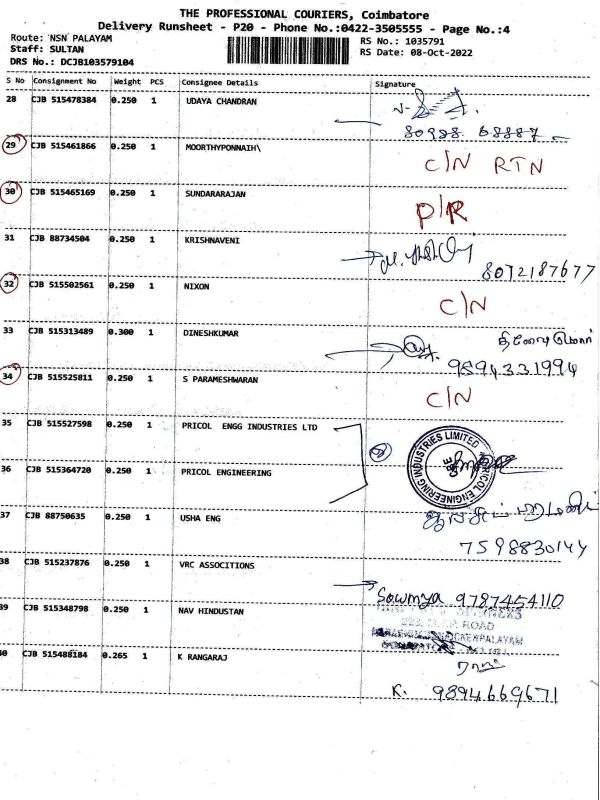 THE PROFESSIONAL COURIERS, Coimbatore
Delivery Runsheet - P20 - Phone No.:0422-3505555 - Page No.:4
Route: NSN PALAYAM
Staff: SULTAN
DRS No.: DCJB103579104
RS No.: 1035791
RS Date: 08-Oct-2022
S No Consignment No Weight PCS Consignee Details Signature
28 CJB 515478384 0.250 1 UDAYA CHANDRAN
80988 68887
29 CJB 515461866 0.250 1 MOORTHYPONNAIH\ C/N RTN
30 CJB 515465169 0.250 1 SUNDARARAJAN P/R
31 CJB 88734504 0.250 1 KRISHNAVENI
8072187677
32 CJB 515502561 0.250 1 NIXON C/N
33 CJB 515313489 0.300 1 DINESHKUMAR
9894331994
34 CJB 515525811 0.250 1 S PARAMESHWARAN C/N
35 CJB 515527598 0.250 1 PRICOL ENGG INDUSTRIES LTD
PRICOL ENGINEERING INDUSTRIES LIMITED
36 CJB 515364720 0.250 1 PRICOL ENGINEERING
37 CJB 88750635 0.250 1 USHA ENG
7598830144
38 CJB 515237876 0.250 1 VRC ASSOCITIONS
Sowmya 9787454110
39 CJB 515348798 0.250 1 NAV HINDUSTAN
ROAD
40 CJB 515488184 0.265 1 K RANGARAJ
K. 9894669671